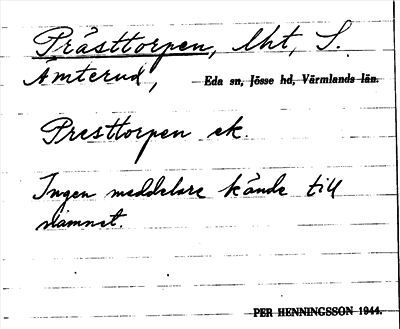 Prästtorpen, lht, S.
Ämterud, Eda sn, Jösse hd, Värmlands län.
Presttorpen ek.
Ingen meddelare kände till
namnet.
PER HENNINGSSON 1944.